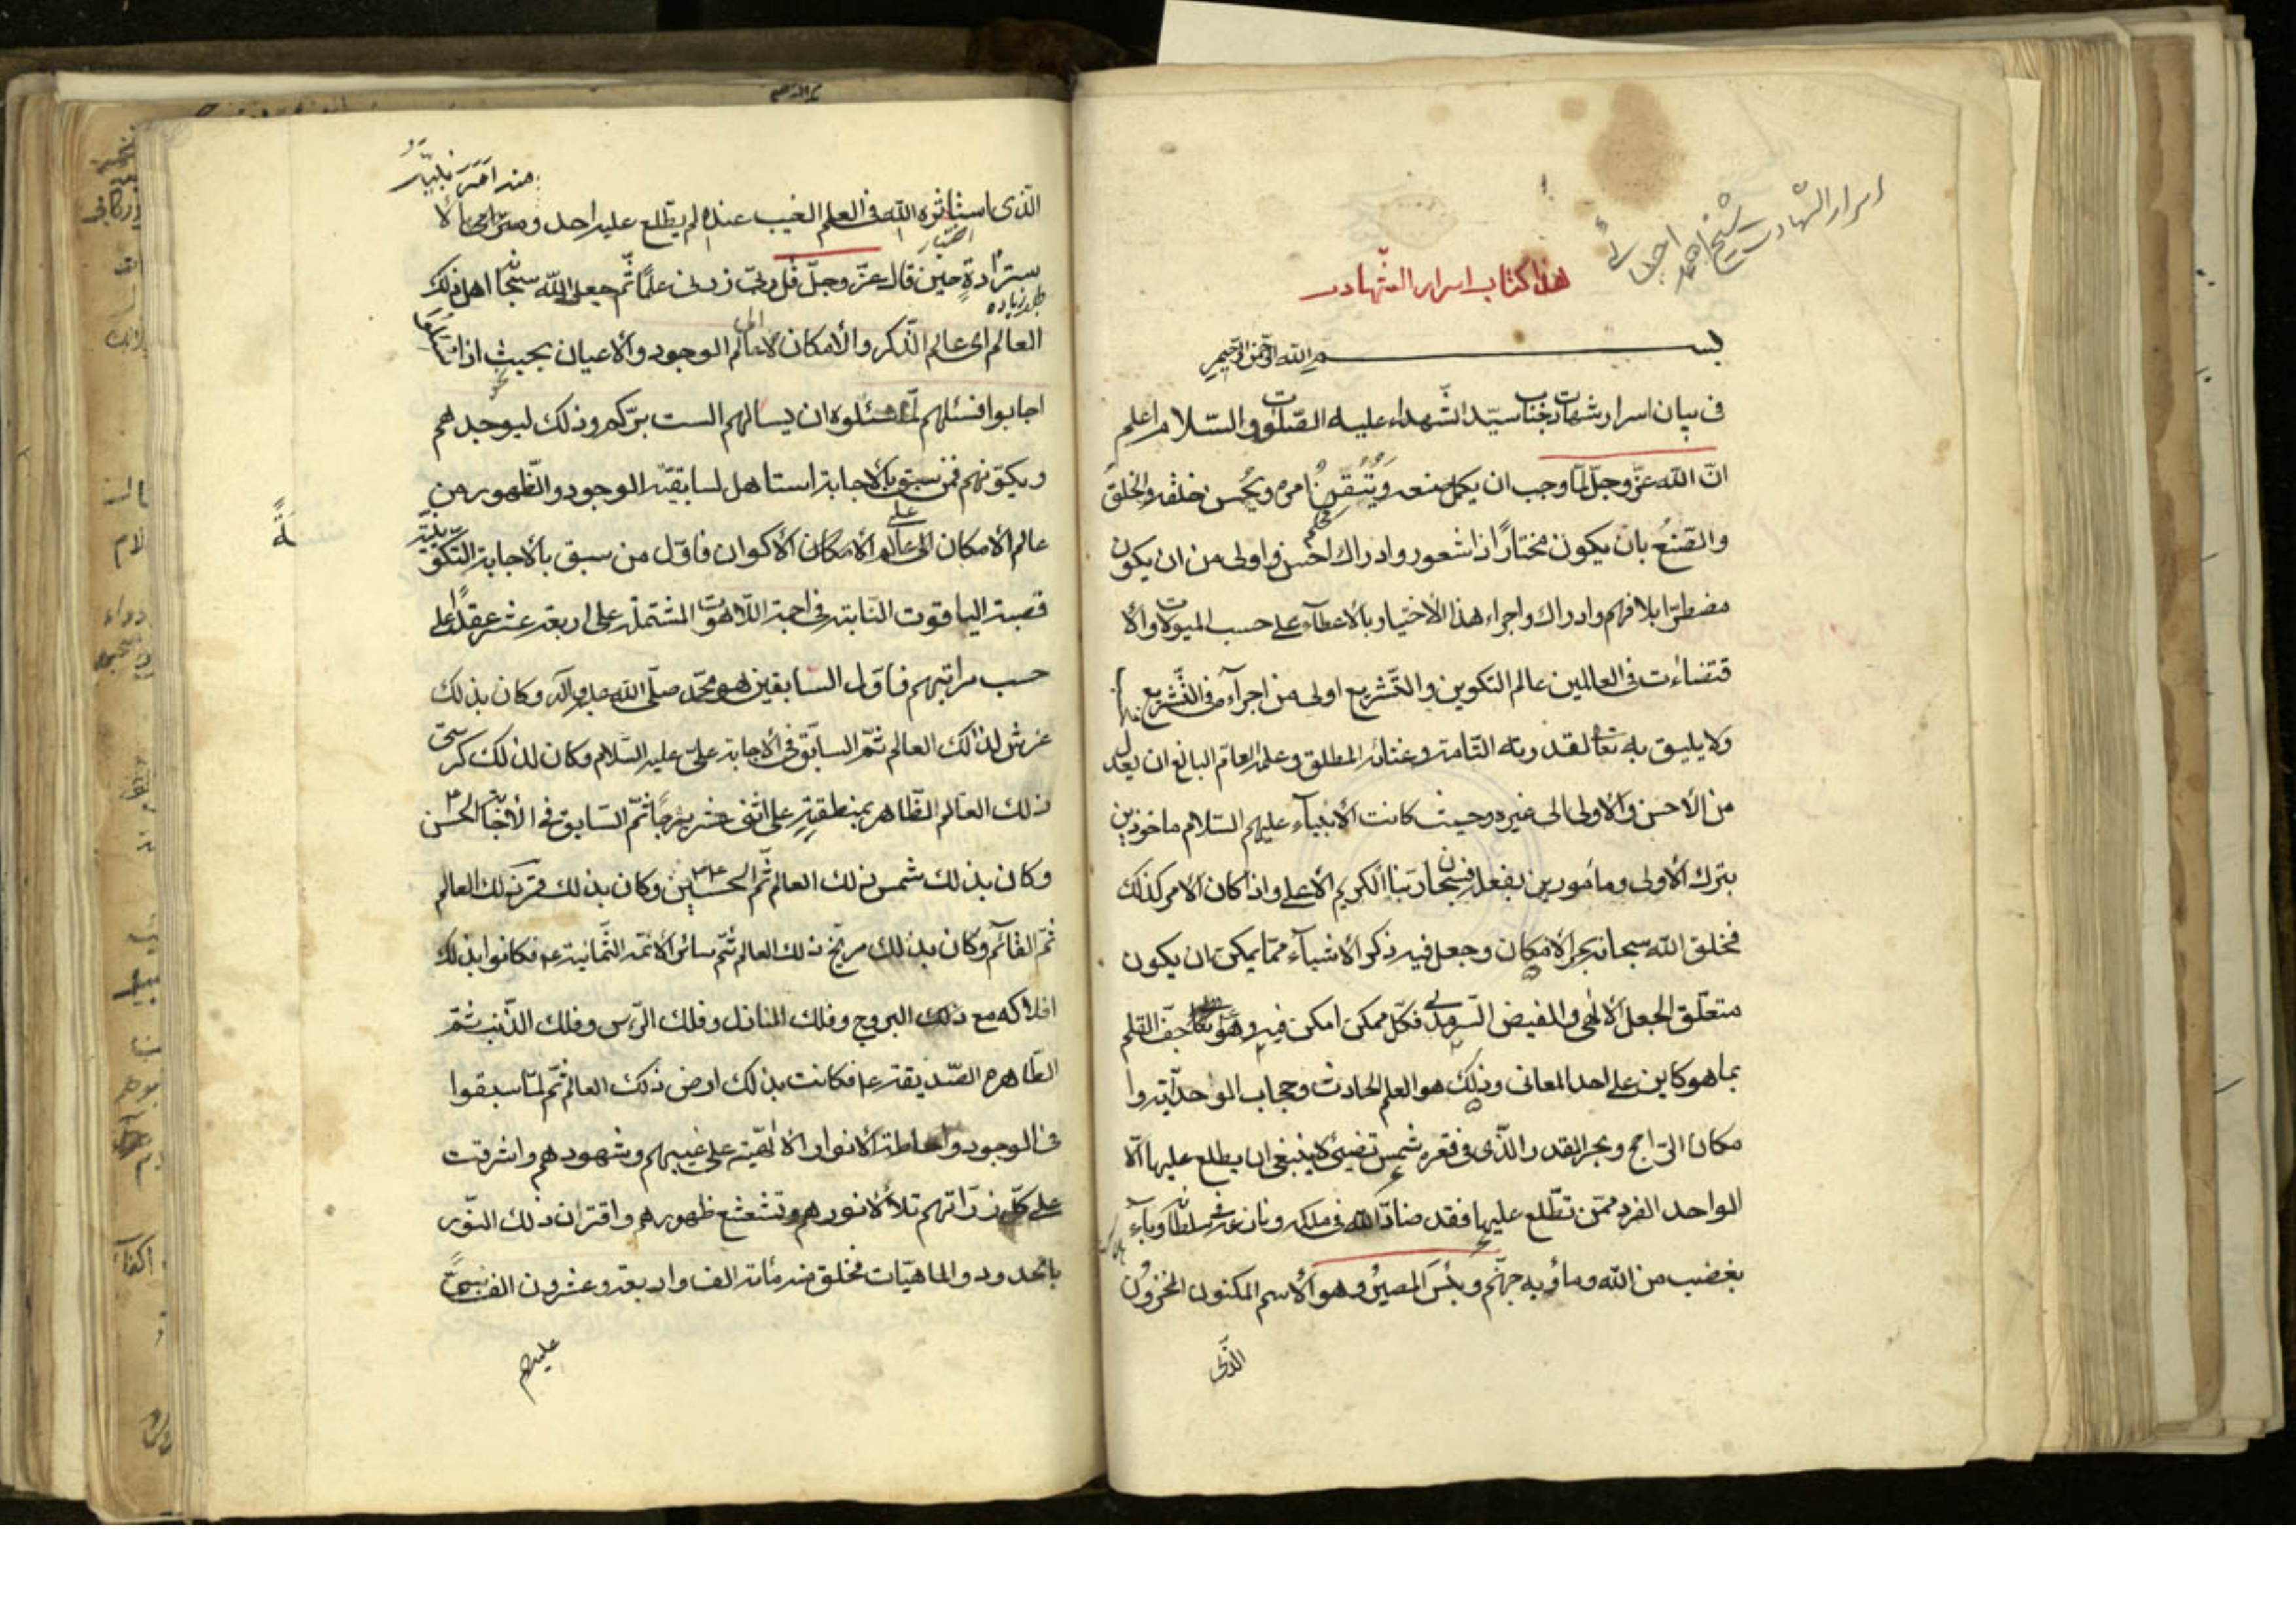 اسرار الشهادت
شيخ احمد احسائى
هذا كتاب اسرار الشّهادت
بسم الله الرّحمن الرّحيم
فى بيان اسرار شهادت جناب سيّد الشّهداء عليه الصّلوة والسّلام اعلم
انّ الله عزّ وجلّ لمّا وجب ان يكمل صنعه ويُتْقِن امره ويُحْسِن خلقه والخلق
والصّنعُ بان يكون مختارًا ذا شعور وادراك احسن واولى من ان يكون
مضطرّا بلا فهم وادراك واجراء هذا الأختيار بالأعطآء على حسب الميولات والأ
قتضاءت فى العالمين عالم التكوين والتّشريع اولى من اجرآء فى التّشريع
ولا يليق به تعالى لقدرته التّامة وغنائه المطلق وعلمه العامّ البالغ ان يعدل
من الأحسن والأولى الى غيره وحيث كانت الأنبيآء عليهم السّلام ماخوذين
بترك الأولى ومأمورين بفعله فسبحان ربّنا الكريم الأعلى واذا كان الأمر كذلك
فخلق الله سبحانه بحر الأمكان وجعل فيه ذكر الأشيآء ممّا يمكن ان يكون
متعلّق الجعل الألهى والفيض السّرمدى فكلّ ممكن امكن فيه وهو جفّ القلم
بما هو كاين على احد المعانى وذلك هو العلم الحادث وحجاب الواحديّة والأ
مكان الرّاجح وبحر القدر الّذى فى قعره شمس تضيئ لا ينبغى ان يطلع عليها الّا
الواحد الفرد فمن تطّلع عليها فقد ضادّ الله فى ملكه ونازعه فى سلطانه وبآء
بغضب من الله ومأويه جهنّم وبئسَ المصيرُ وهو الأسم المكنون المخزون
الّذى
الّذى استأثره الله فى العلم الغيب عنده لم يطّلع عليه احد
ستزادةٍ حين قال عزّ وجلّ قُل ربّ زدنى علمًا ثّم جعل الله سبحانه اهل ذلك
طلب زياده
العالم اى عالم الذّكر والأمكان لا عالم الوجود والأعيان بحيث اذا
اجابوا فسئلهم لمّا سئلوه ان يسالهم الست بربّكم وذلك ليوجدهم
ويكوّنهم فمن سبق بالأجابة استاهل لسابقيّة الوجود والظّهور من
عالم الأمكان الى عالم الأكوان فاوّل من سبق بالأجابة التّكوينيّة
قصبة الياقوت النّابتة فى اجمة اللّاهوت المشتملة على اربعة عشر عقدًا على
حسب مراتبهم فاوّل السّابقين هو محمّد صلّى الله عليه وآله وكان بذلك
عرش لذلك العالم ثمّ السابق فى الأجابة علىّ عليه السّلام وكان لذلك كرسىّ
ذلك العالم الظّاهر بمنطقيّته على اثنى عشر برجًا ثمّ السّابق فى الأجابة الحسن
وكان بذلك شمس ذلك العالم ثّم الحسين وكان بذلك قمر ذلك العالم
ثمّ القآئم وكان بذلك مرّيخ ذلك العالم ثّم سائر الأئمّة الثّمانية ع فكانوا بذلك
افلاكه مع ذلك البروج وفلك المنازل وفلك الرّاس وفلك الذّنب ثمّ
الطّاهره الصّديقة ع فكانت بذلك ارض ذلك العالم ثّم لمّا سبقوا
فى الوجود واحاطة الأنوار الألهيّة على غيبهم وشهودهم واشرقت
على كلّ ذرّاتهم تلألأ نورهم وتشعشع ظهورهم واقتران ذلك النّور
بالحدود والماهيّات فخلق منه مأئة الف واربعة وعشرون الف نبىّ
عليهم